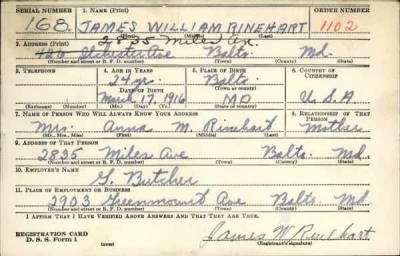 SERIAL NUMBER 1. NAME (Print) ORDER NUMBER
168. JAMES WILLIAM RINEHART 1102
(First) (Middle) (Last)
2. ADDRESS (Print) 2835 Miles Av.
Balto. Md.
(Number and street or R. F. D. number) (Town) (County) (State)
3. TELEPHONE 4. AGE IN YEARS 5. PLACE OF BIRTH 6. COUNTRY OF CITIZENSHIP
24 Balto.
(Town or county)
DATE OF BIRTH
March 17 1916 MD U.S.A
(Exchange) (Number) (Mo.) (Day) (Yr.) (State or country)
7. NAME OF PERSON WHO WILL ALWAYS KNOW YOUR ADDRESS 8. RELATIONSHIP OF THAT PERSON
Mrs. Anna M. Rinehart Mother
(Mr., Mrs., Miss) (First) (Middle) (Last)
9. ADDRESS OF THAT PERSON
2835 Miles Ave Balto. Md.
(Number and street or R. F. D. number) (Town) (County) (State)
10. EMPLOYER'S NAME
G. Butcher
11. PLACE OF EMPLOYMENT OR BUSINESS
2903 Greenmount Ave Balto. Md
(Number and street or R. F. D. number) (Town) (County) (State)
I AFFIRM THAT I HAVE VERIFIED ABOVE ANSWERS AND THAT THEY ARE TRUE.
REGISTRATION CARD
D. S. S. Form 1
(over)
James W Rinehart
(Registrant's signature)